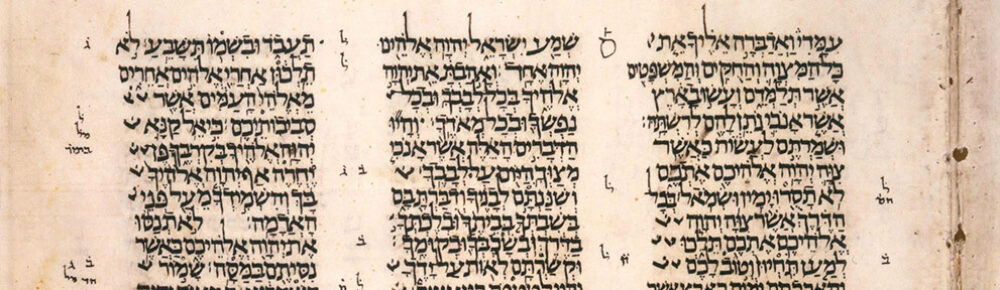 עמדי ואדברה אליך את
כל המצוה והחקים והמשפטים
אשר תלמדם ועשו בארץ
אשר אנכי נתן להם לרשתה
ושמרתם לעשות כאשר
צוה יהוה אלהיכם אתכם
לא תסרו ימין ושמאל בכל
הדרך אשר צוה יהוה
אלהיכם אתכם תלכו
למען תחיון וטוב לכם
שמע ישראל יהוה אלהינו
יהוה אחד ואהבת את יהוה
אלהיך בכל לבבך ובכל
נפשך ובכל מאדך והיו
הדברים האלה אשר אנכי
מצוך היום על לבבך
ושננתם לבניך ודברת בם
בשבתך בביתך ובלכתך
בדרך ובשכבך ובקומך
וקשרתם לאות על ידך
תעבד ובשמו תשבע לא
תלכון אחרי אלהים אחרים
מאלהי העמים אשר
סביבותיכם כי אל קנא
יהוה אלהיך בקרבך פן
יחרה אף יהוה אלהיך
בך והשמידך מעל פני
האדמה לא תנסו
את יהוה אלהיכם כאשר
נסיתם במסה שמור